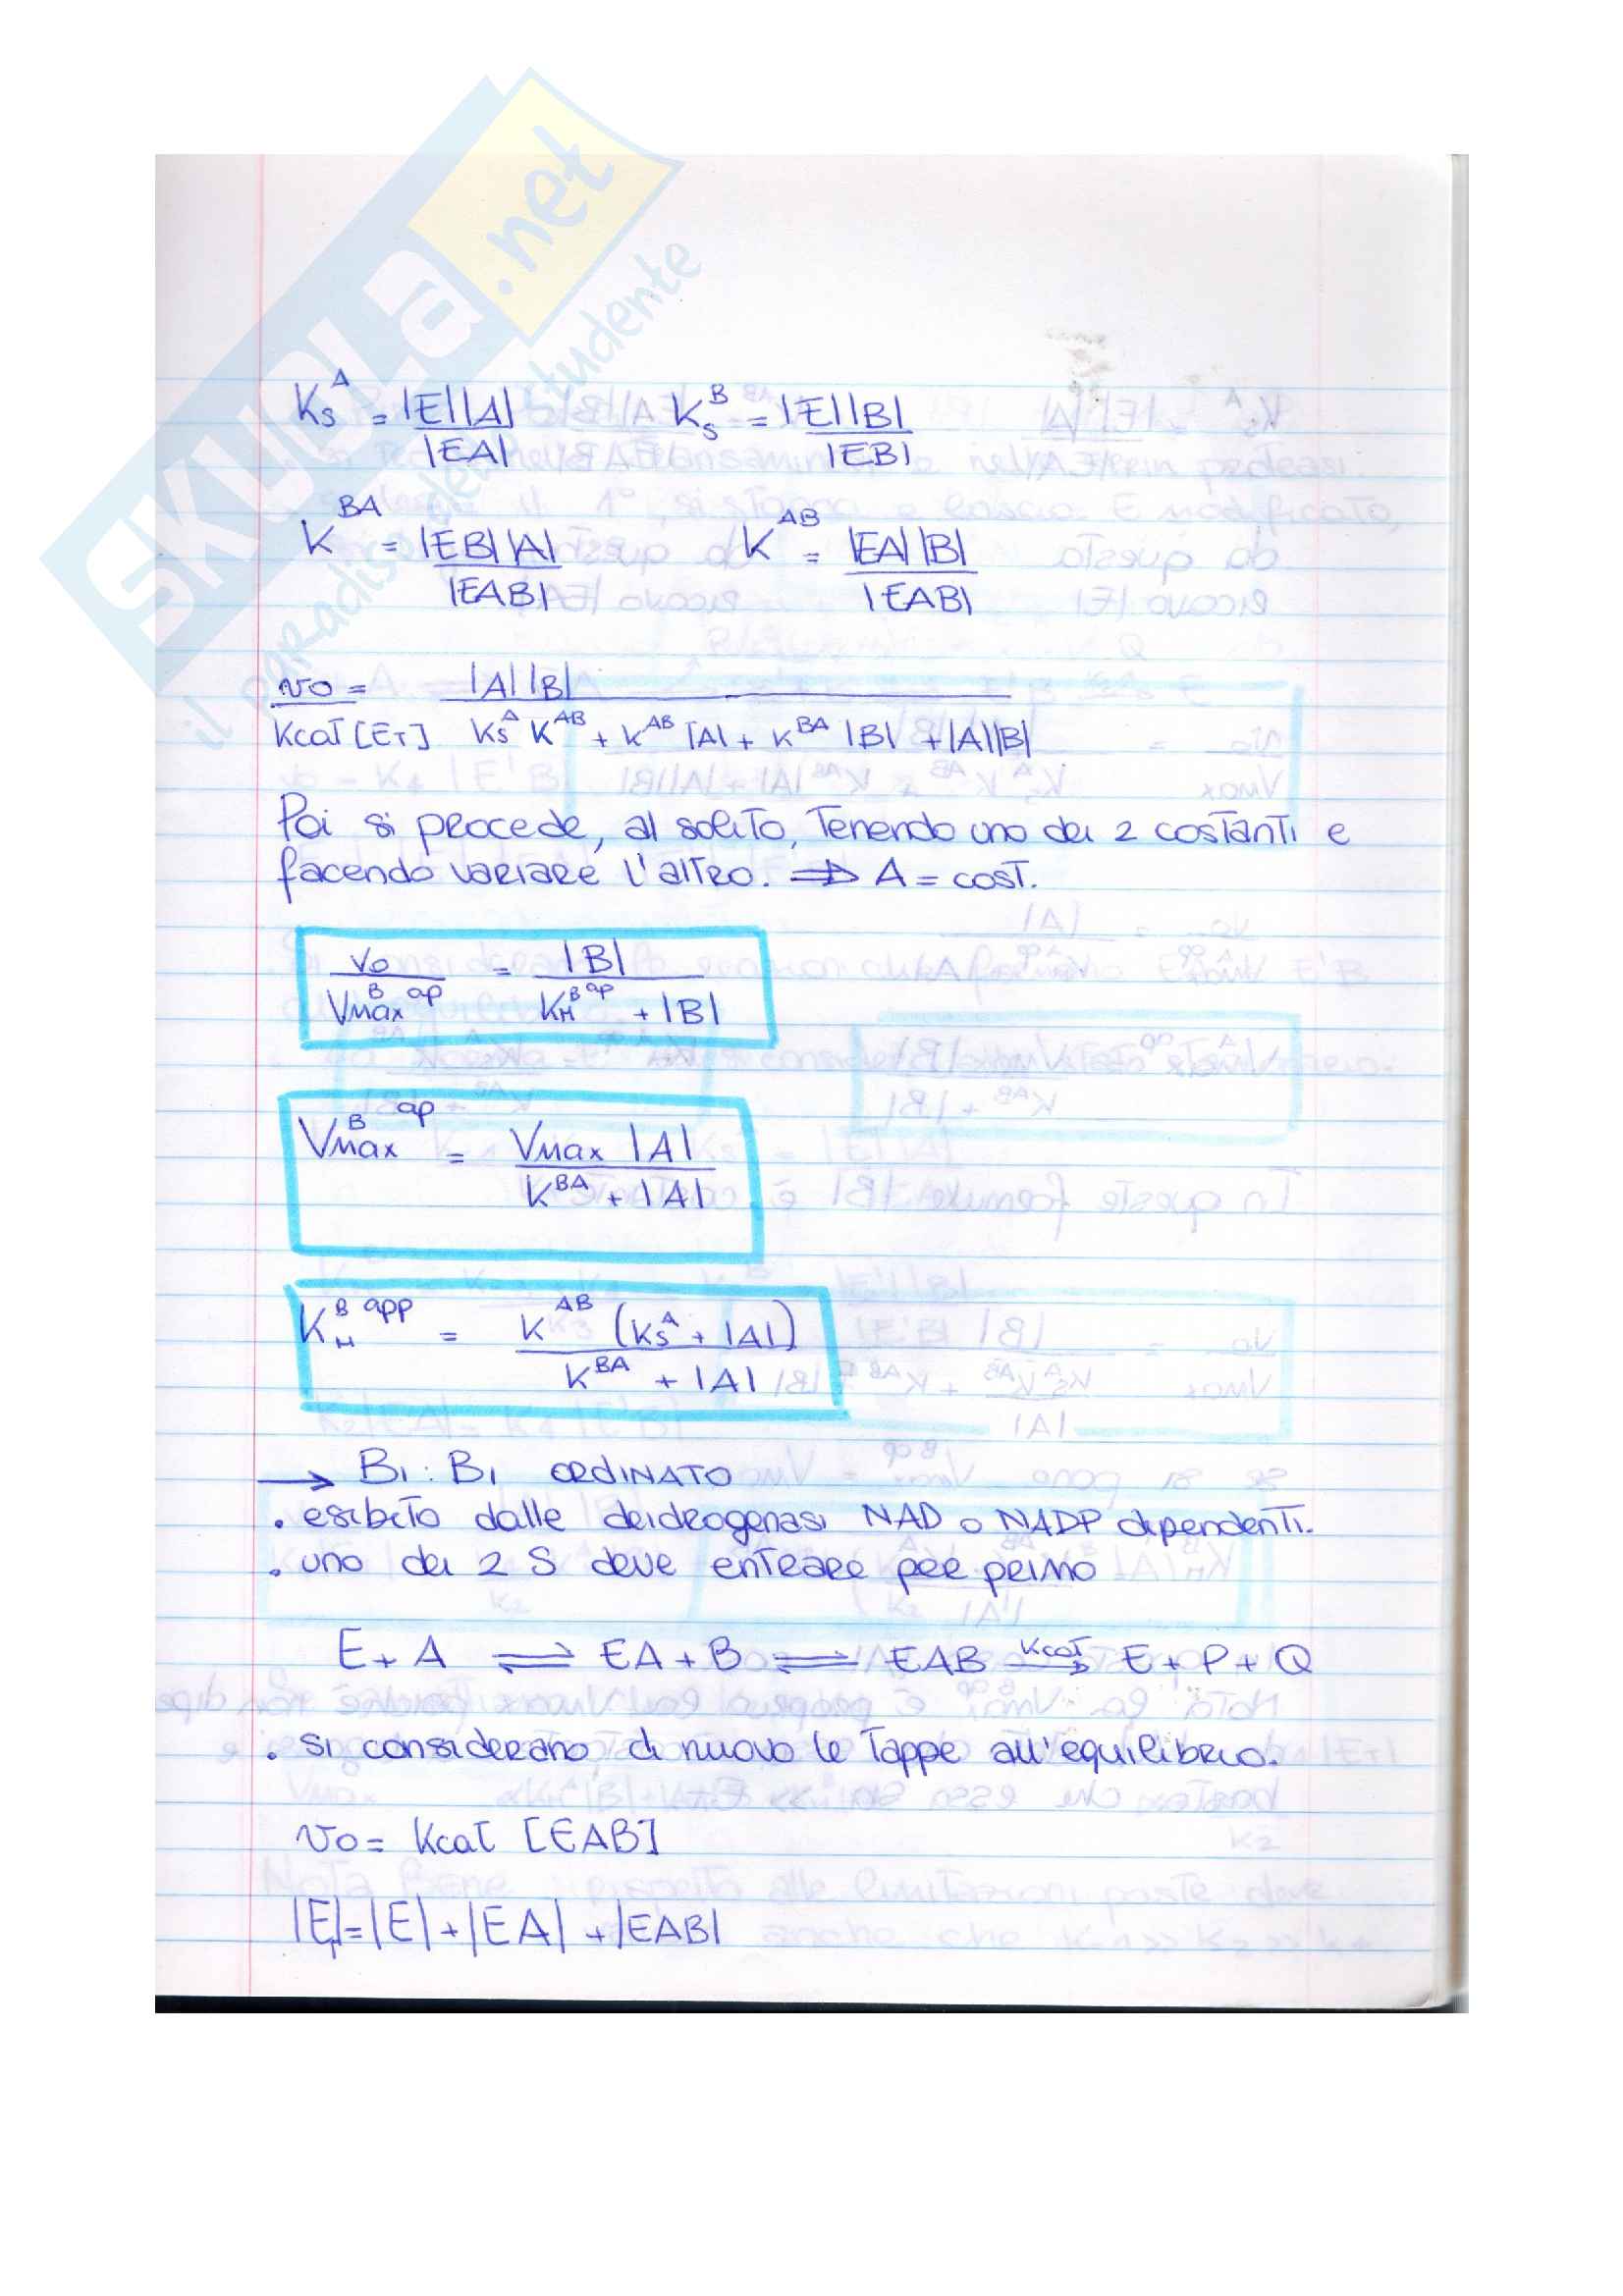 SKUOLA.net
il paradiso dello studente
Ks^A = |E||A| / |EA|    Ks^B = |E||B| / |EB|
K^BA = |EB||A| / |EAB|    K^AB = |EA||B| / |EAB|
vo / Kcat [ET] = |A||B| / Ks^A K^AB + K^AB |A| + K^BA |B| + |A||B|
Poi si procede, al solito, tenendo uno dei 2 costanti e
facendo variare l'altro. ⇒ A = cost.
vo / Vmax^B ap = |B| / KM^B ap + |B|
Vmax^B ap = Vmax |A| / K^BA + |A|
KM^B app = K^AB (Ks^A + |A|) / K^BA + |A|
→ Bi:Bi ORDINATO
. esibito dalle deidrogenasi NAD o NADP dipendenti.
. uno dei 2 S deve entrare per primo
E + A ⇌ EA + B ⇌ EAB Kcat→ E + P + Q
. si considerano di nuovo le tappe all'equilibrio.
vo = Kcat [EAB]
|ET| = |E| + |EA| + |EAB|